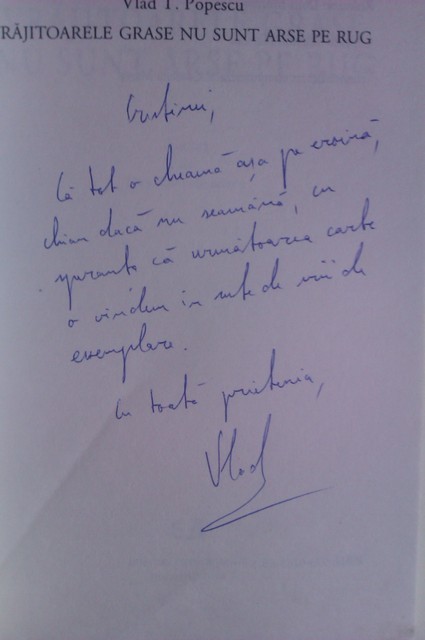 Vlad T. Popescu
RĂJITOARELE GRASE NU SUNT ARSE PE RUG
Cristinei,
Că tot o cheamă așa pe eroină,
chiar dacă nu seamănă, cu
speranța că următoarea carte
o vindem în sute de mii de
exemplare.
Cu toată prietenia,
Vlad